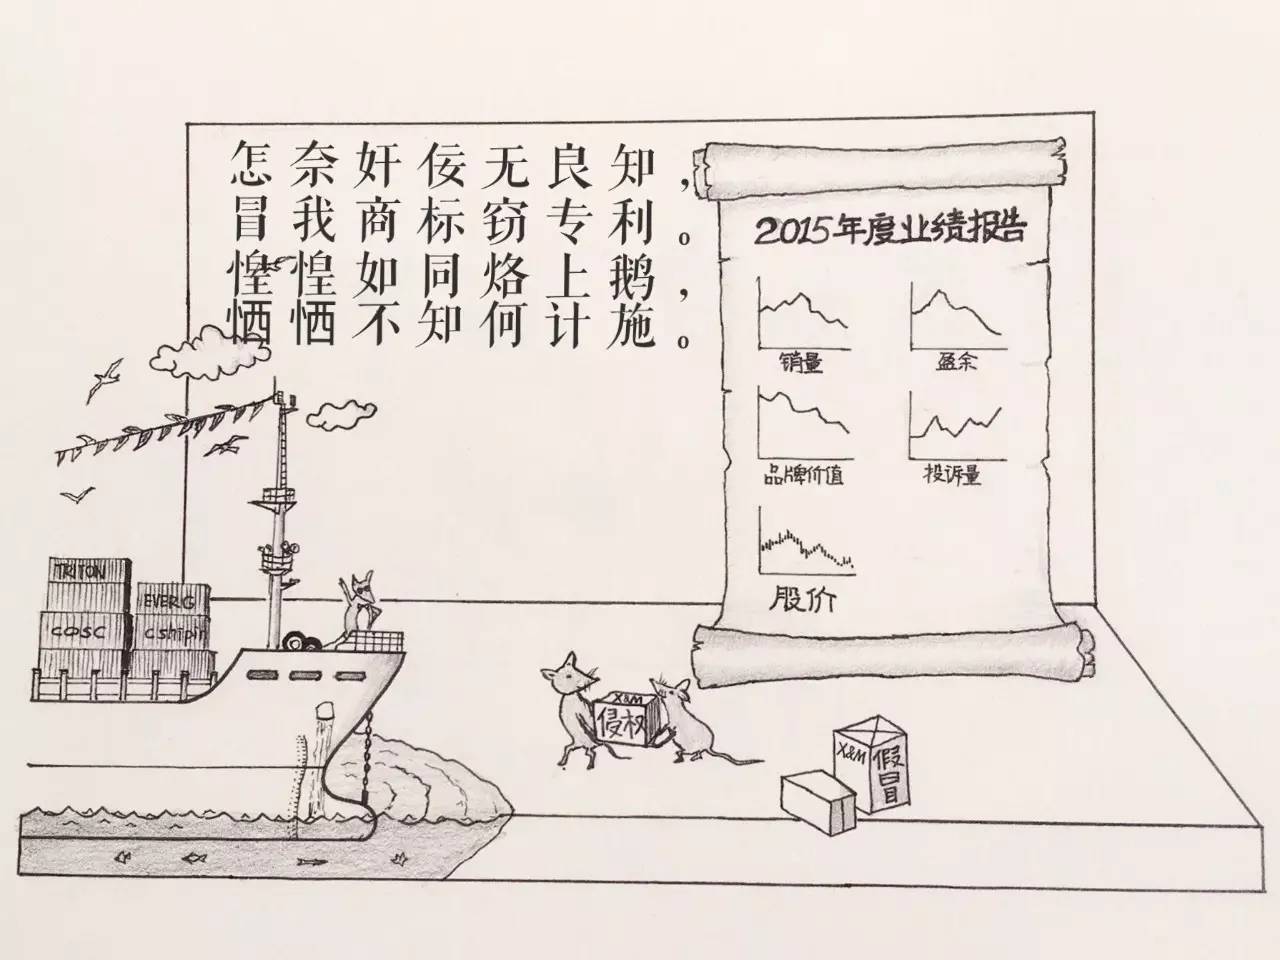 怎奈奸佞无良知，
冒我商标窃专利。
惶惶如同烙上鹅，
恓恓不知何计施。
2015年度业绩报告
销量
盈余
品牌价值
投诉量
股价
TRITON
EVERG
COSC
cshipin
X&M
侵权
X&M
假冒